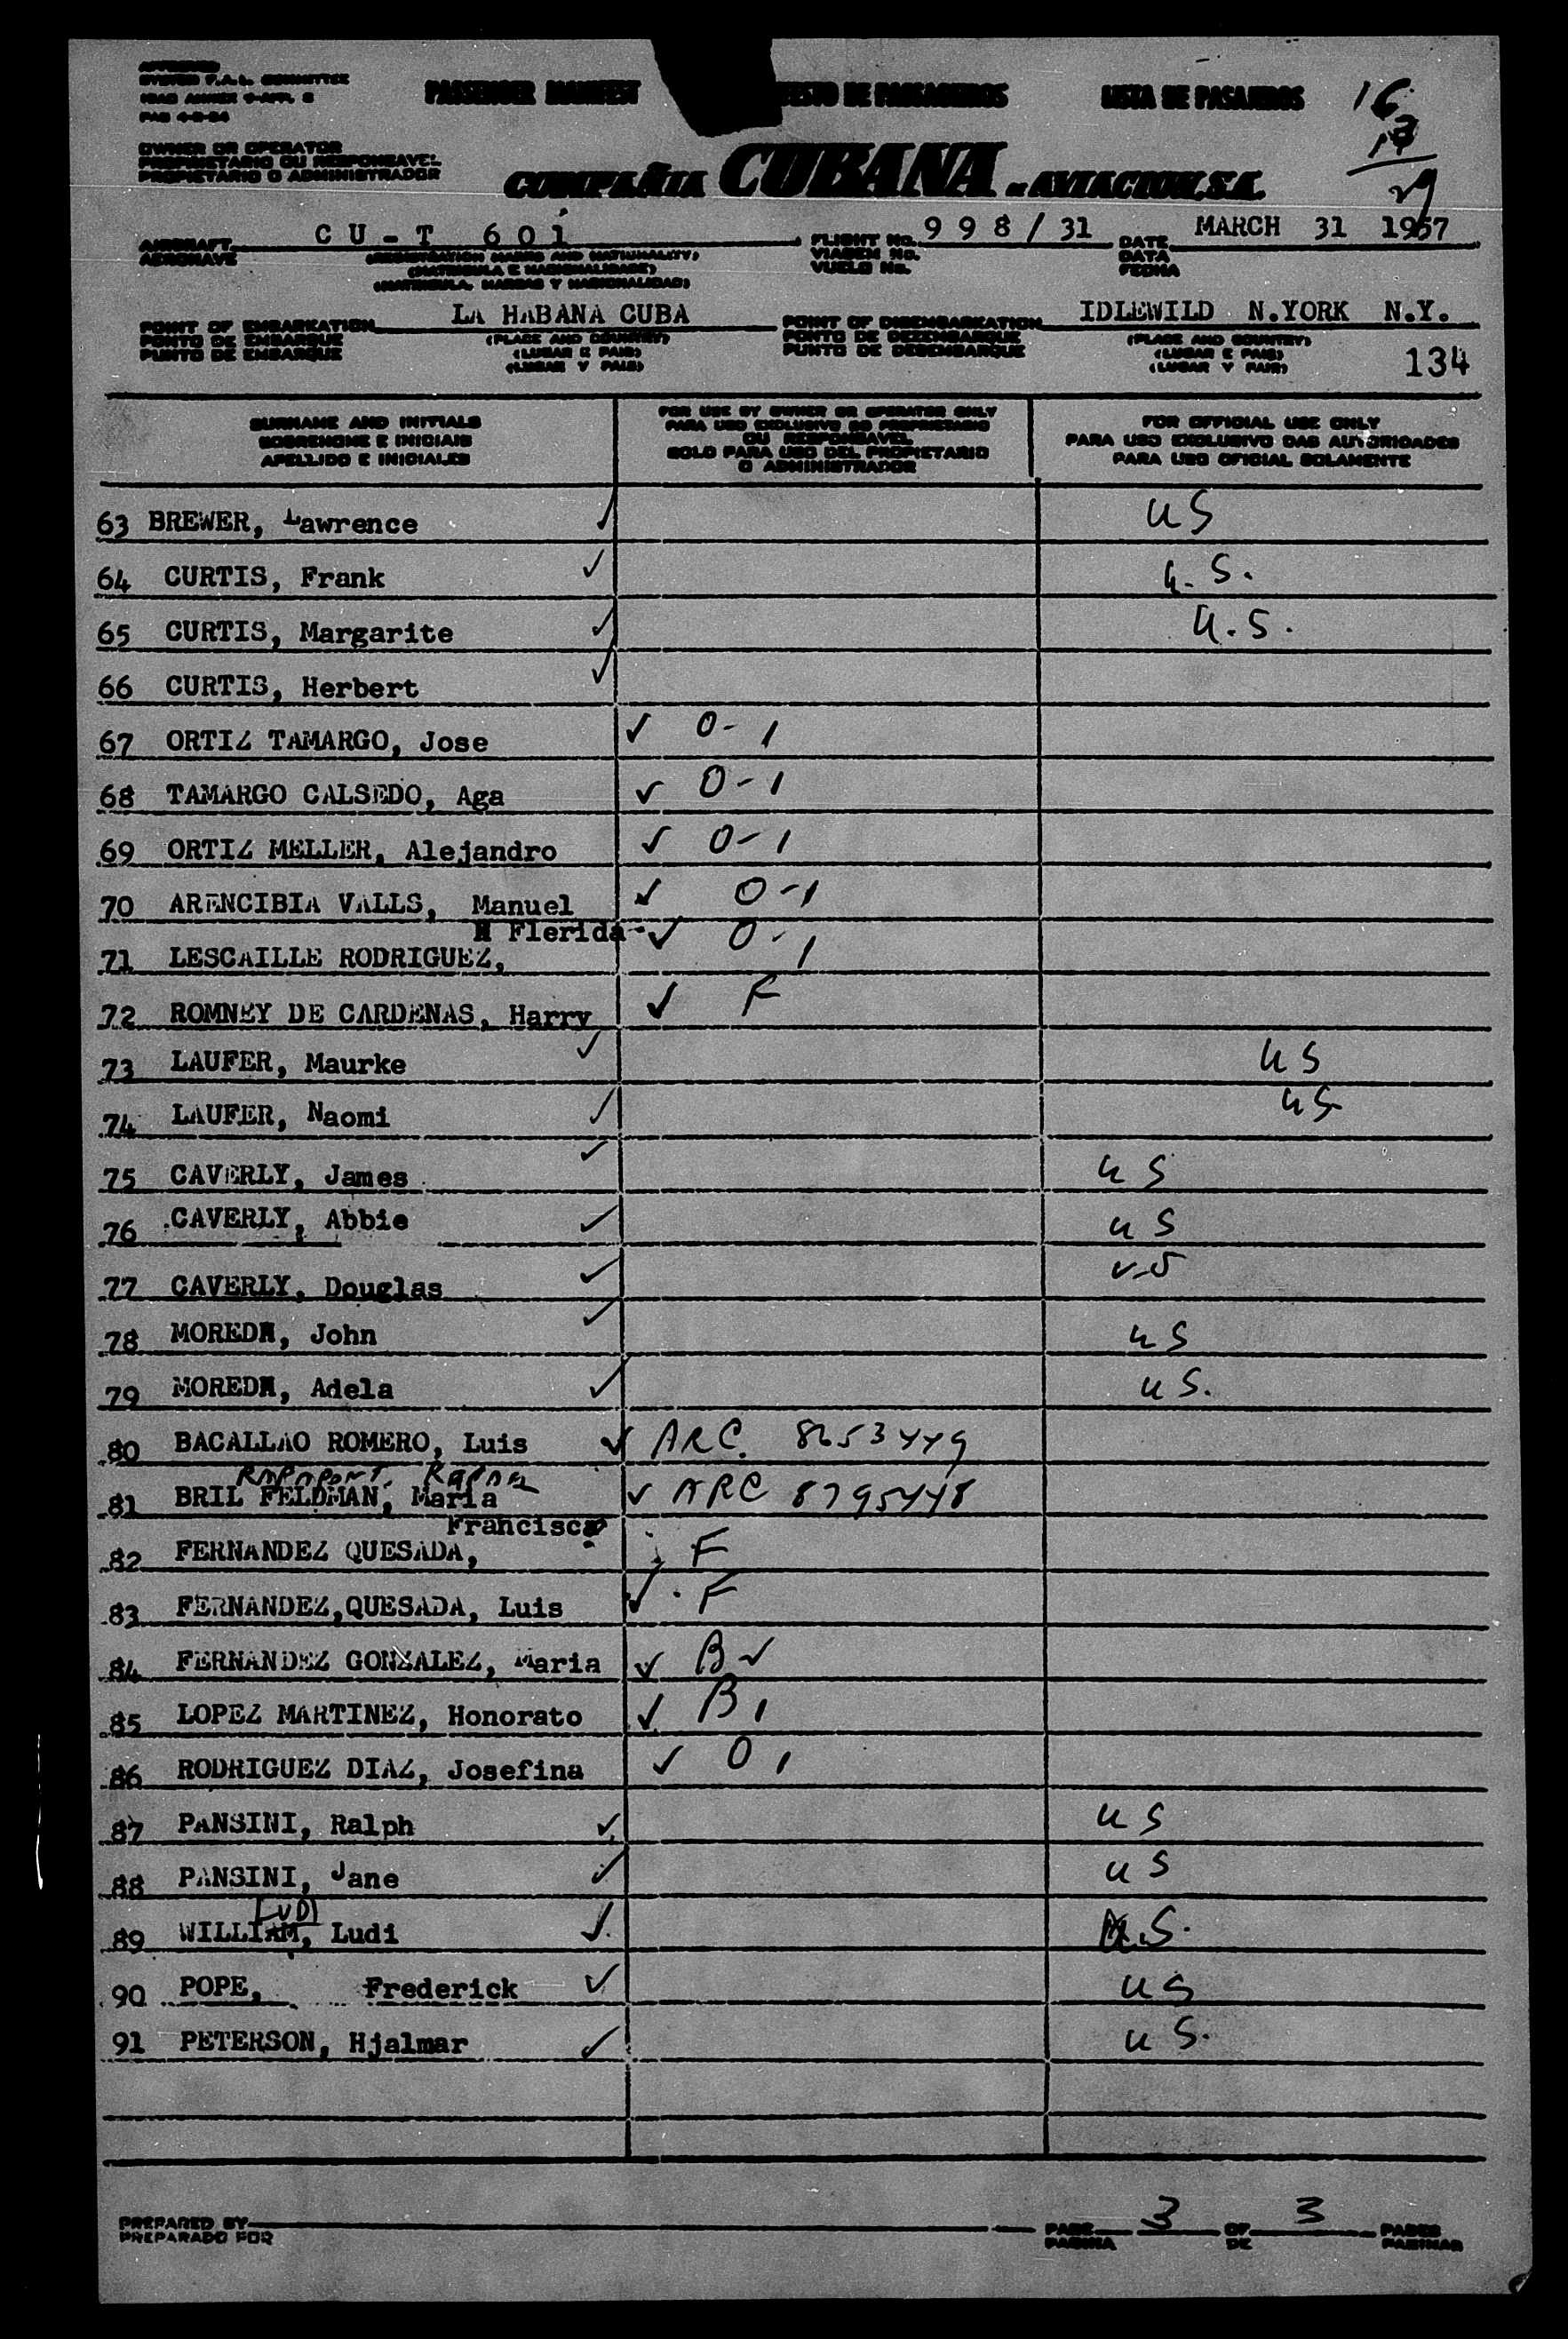 APPROVED
SYSTEM F.A.L. COMMITTEE
ICAO ANNEX 9-APP. 
PAS 4-2-54
PASSENGER MANIFEST
ESTO DE PASSAGEIROS
LISTA DE PASAJEROS
16
13
29
OWNER OR OPERATOR
PROPRIETARIO OU RESPONSAVEL
PROPIETARIO O ADMINISTRADOR
COMPAÑIA CUBANA DE AVIACION, S.A.
AIRCRAFT CU-T 601 FLIGHT No. 998/31 DATE MARCH 31 1957
AERONAVE (REGISTRATION MARKS AND NATIONALITY) VIAGEM No. DATA
(MATRICULA E NACIONALIDADE) VUELO No. FECHA
(MATRICULA, MARCAS Y NACIONALIDAD)
POINT OF EMBARKATION LA HABANA CUBA POINT OF DISEMBARKATION IDLEWILD N.YORK N.Y.
PONTO DE EMBARQUE (PLACE AND COUNTRY) PONTO DE DEZEMBARQUE (PLACE AND COUNTRY)
PUNTO DE EMBARQUE (LUGAR E PAIS) PUNTO DE DESEMBARQUE (LUGAR E PAIS)
(LUGAR Y PAIS) (LUGAR Y PAIS) 134
SURNAME AND INITIALS
SOBRENOME E INICIAIS
APELLIDO E INICIALES
FOR USE BY OWNER OR OPERATOR ONLY
PARA USO EXCLUSIVO DO PROPRIETARIO
OU RESPONSAVEL
SOLO PARA USO DEL PROPIETARIO
O ADMINISTRADOR
FOR OFFICIAL USE ONLY
PARA USO EXCLUSIVO DAS AUTORIDADES
PARA USO OFICIAL SOLAMENTE
63 BREWER, Lawrence ✓ US
64 CURTIS, Frank ✓ U.S.
65 CURTIS, Margarite ✓ U.S.
66 CURTIS, Herbert ✓
67 ORTIZ TAMARGO, Jose ✓ O-1
68 TAMARGO CALSEDO, Aga ✓ O-1
69 ORTIZ MELLER, Alejandro ✓ O-1
70 ARENCIBIA VALLS, Manuel ✓ O-1
Flerida ✓ O-1
71 LESCAILLE RODRIGUEZ,
72 ROMNEY DE CARDENAS, Harry ✓ F
73 LAUFER, Maurke ✓ US
74 LAUFER, Naomi ✓ US
75 CAVERLY, James ✓ US
76 CAVERLY, Abbie ✓ US
77 CAVERLY, Douglas ✓ US
78 MOREDN, John ✓ US
79 MOREDN, Adela ✓ US.
80 BACALLAO ROMERO, Luis ✓ ARC. 8653449
RAPAPORT,
81 BRIL FELDMAN, Maria ✓ ARC 8795448
Francisca
82 FERNANDEZ QUESADA, F
83 FERNANDEZ,QUESADA, Luis ✓ F
84 FERNANDEZ GONZALEZ, Maria ✓ B✓
85 LOPEZ MARTINEZ, Honorato ✓ B1
86 RODRIGUEZ DIAZ, Josefina ✓ O1
87 PANSINI, Ralph ✓ US
88 PANSINI, Jane ✓ US
LUDI
89 WILLIAM, Ludi ✓ U.S.
90 POPE, Frederick ✓ US
91 PETERSON, Hjalmar ✓ US.
PREPARED BY PAGE 3 OF 3 PAGES
PREPARADO POR PAGINA DE PAGINAS